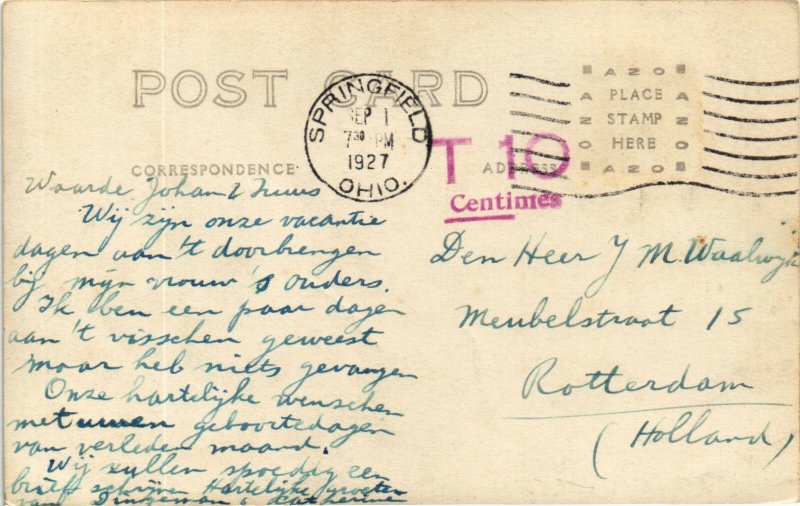 POST CARD
SPRINGFIELD
SEP 1
7 30 PM
1927
OHIO.
AZO
PLACE
STAMP
HERE
AZO
CORRESPONDENCE
ADDRESS
T 10
Centimes
Waarde Johan & Truus
Wij zijn onze vacantie
dagen aan 't doorbrengen
bij mijn vrouw's ouders.
Ik ben een paar dagen
aan 't visschen geweest
maar heb niets gevangen
Onze hartelijke wenschen
met uwen geboortedagen
van verleden maand.
Wij zullen spoedig een
brief schrijven Hartelijke groeten
van Dingeman & Catherine
Den Heer J M. Waalwijk
Meubelstraat 15
Rotterdam
(Holland)